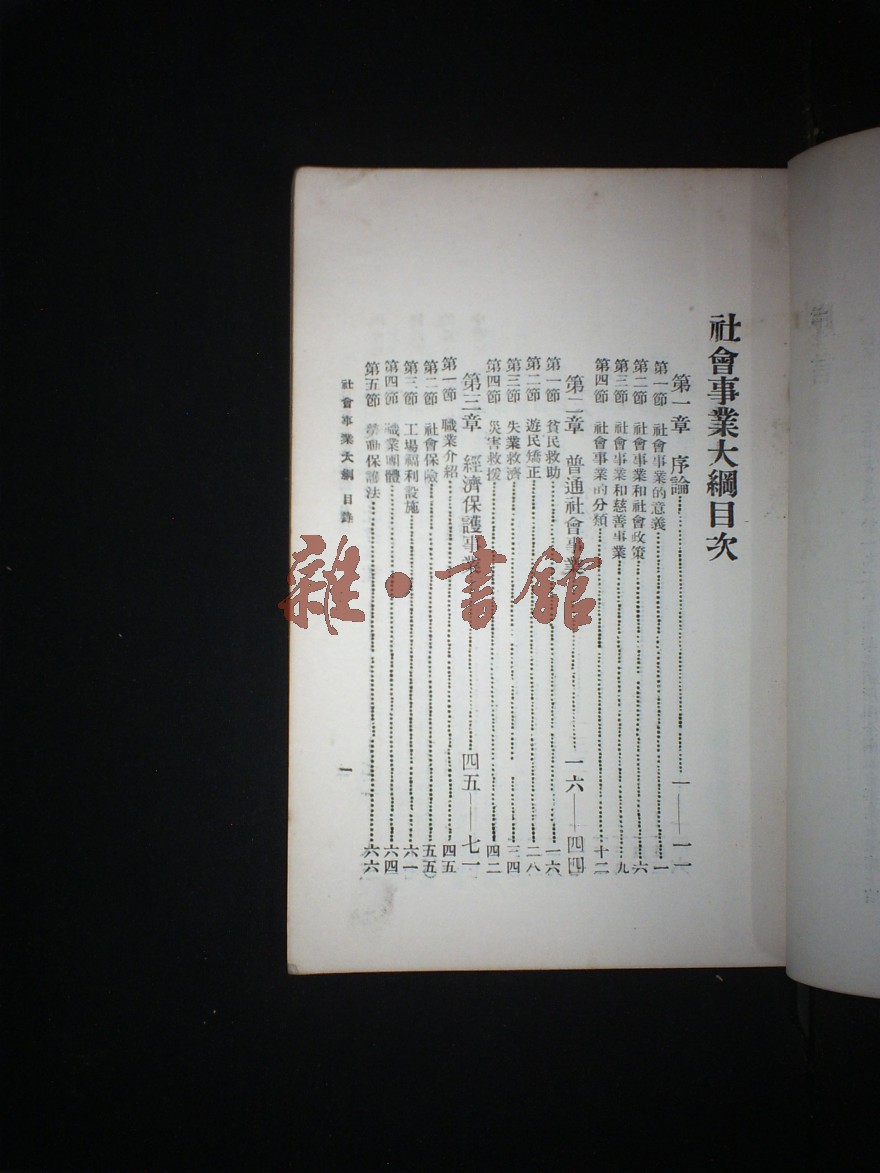 社會事業大綱目次
第一章 序論 一——一一
第一節 社會事業的意義 一
第二節 社會事業和社會政策 六
第三節 社會事業和慈善事業 九
第四節 社會事業的分類 十二
第二章 普通社會事業 一六——四四
第一節 貧民救助 一六
第二節 遊民矯正 二八
第三節 失業救濟 三四
第四節 災害救援 四二
第三章 經濟保護事業 四五——七一
第一節 職業介紹 四五
第二節 社會保險 五五
第三節 工場福利設施 六一
第四節 職業團體 六四
第五節 勞動保護法 六六
社會事業大綱 目錄
一
雜·書館